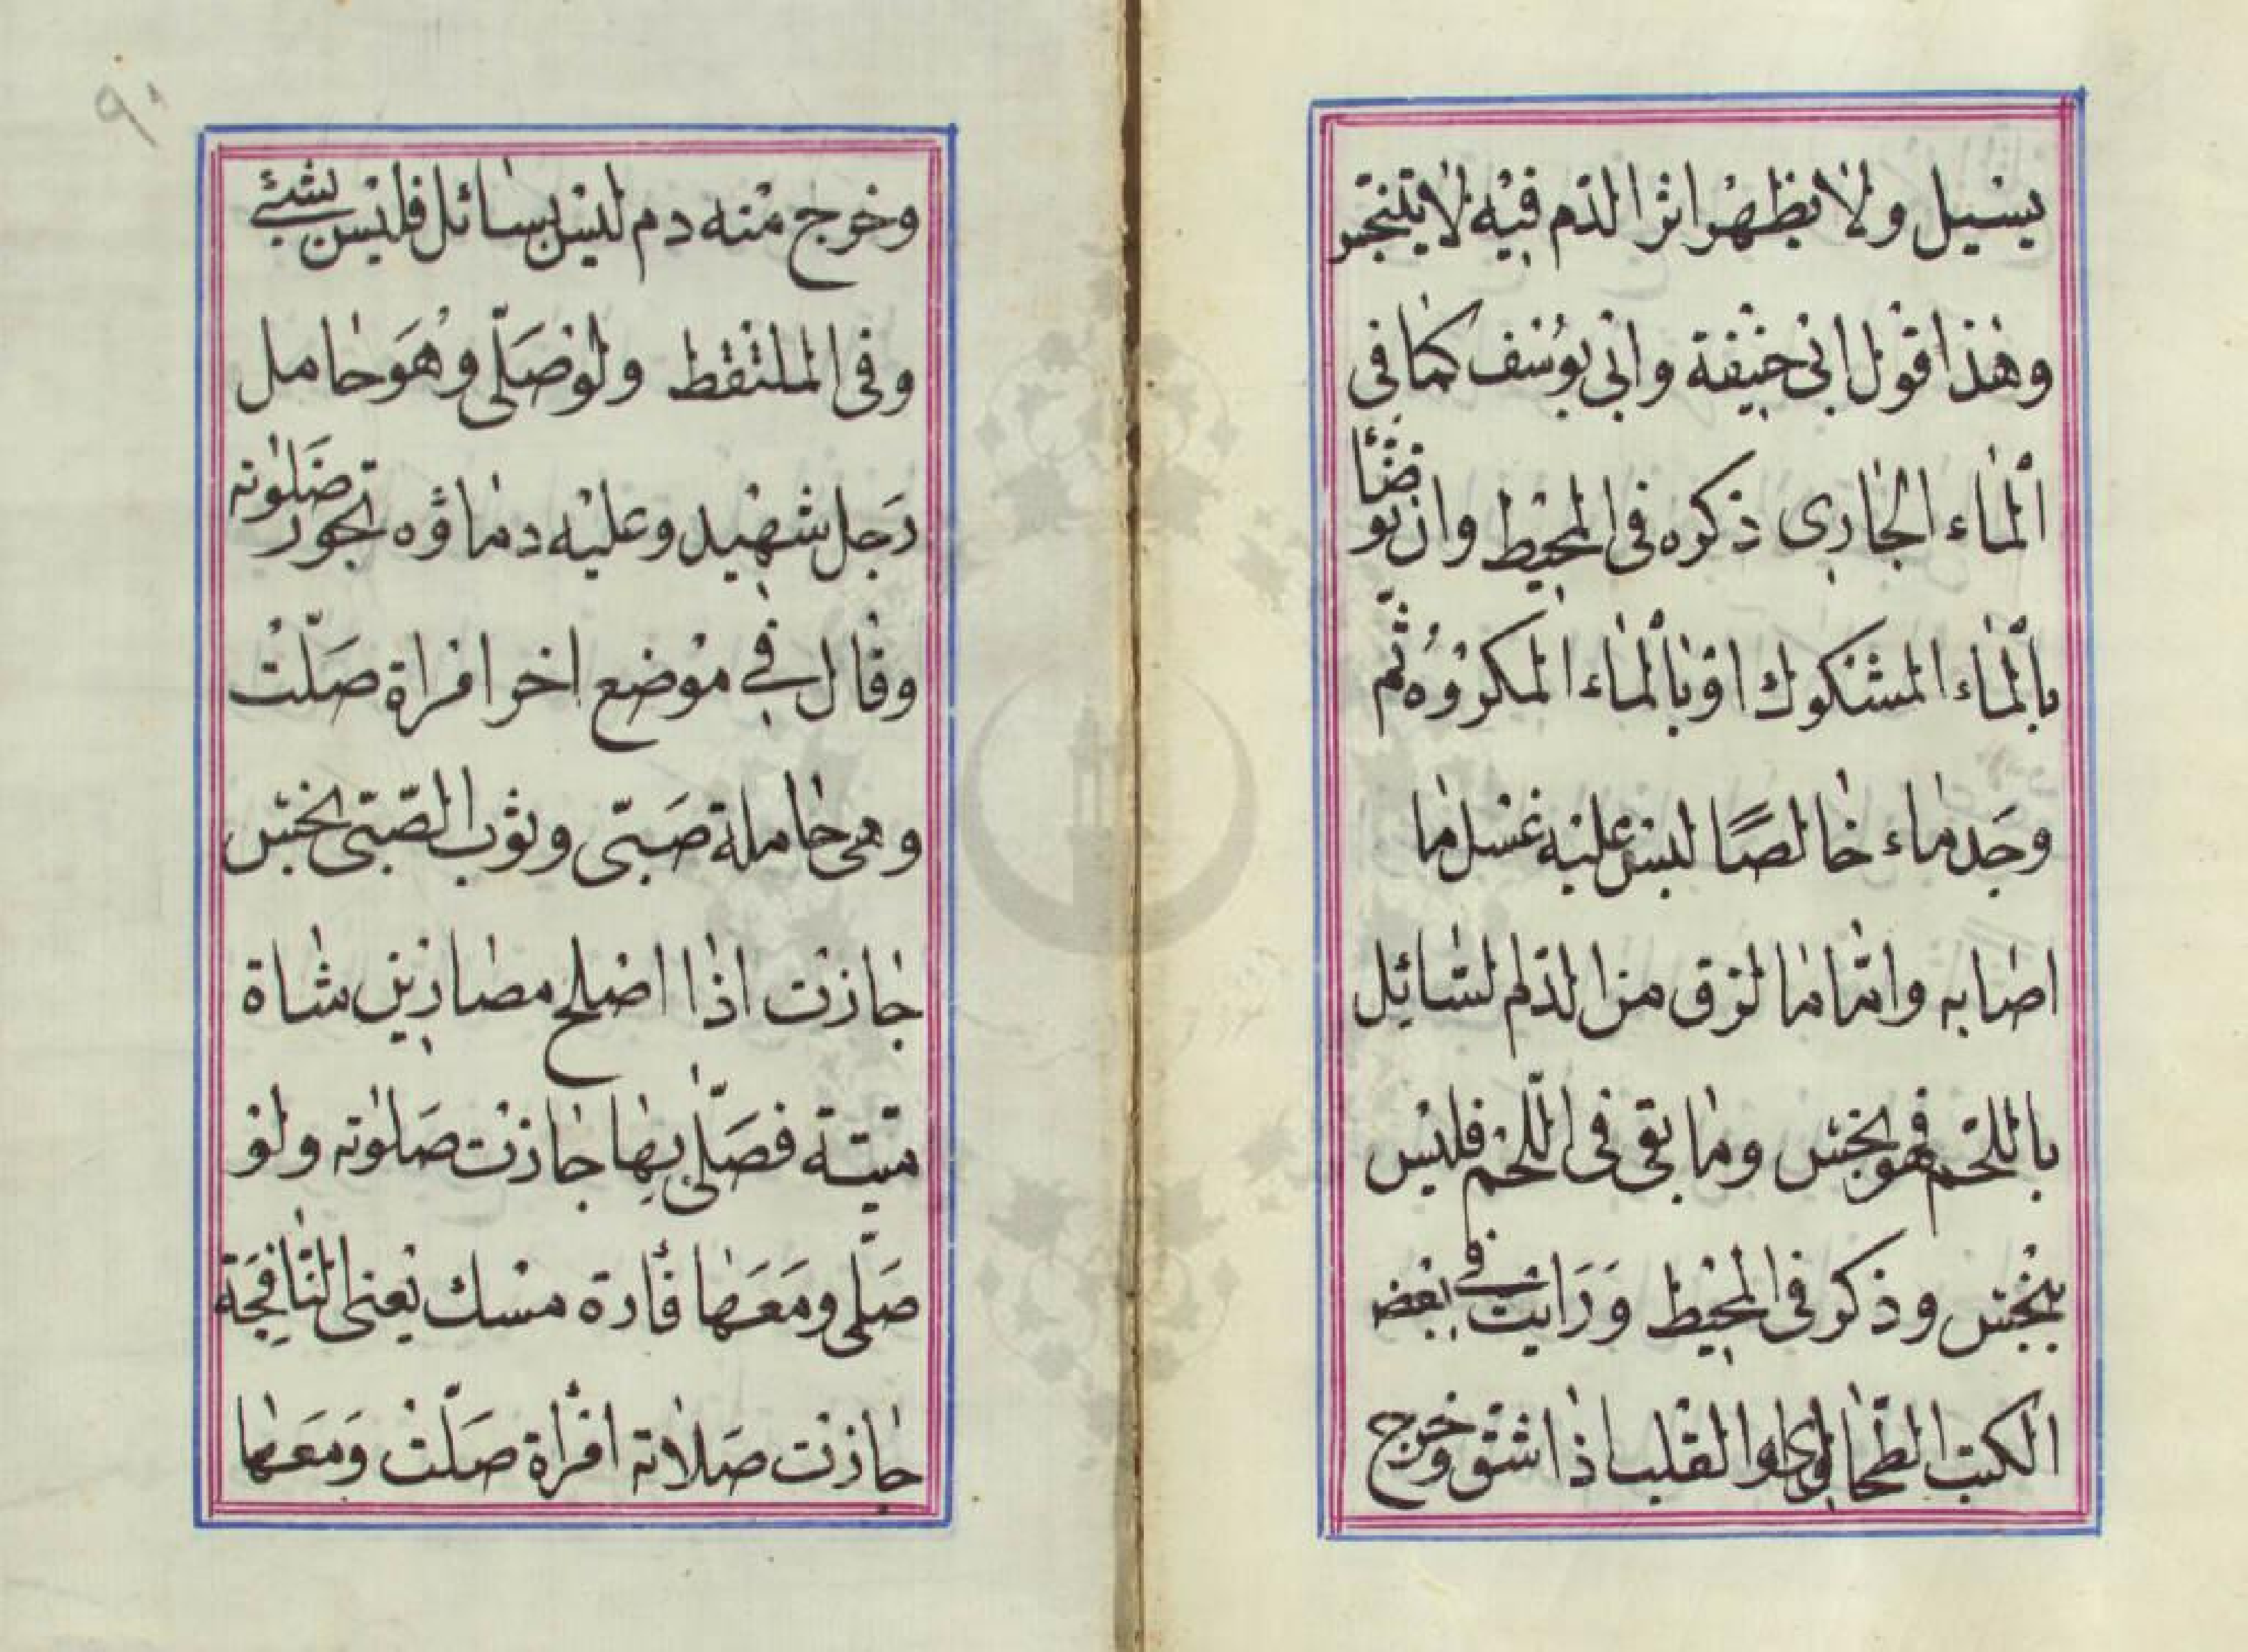 يسيل ولا يظهر اثر الدم فيه لا يتنجس
وهذا قول ابى حنيفة وابى يوسف كما فى
الماء الجارى ذكره فى المحيط وان توضأ
بالماء المشكوك او بالماء المكروه ثم
وجد ماء خالصا ليس عليه غسل ما
اصابه واما ما لزق من الدم السائل
باللحم فهو نجس وما بقى فى اللحم فليس
بنجس وذكر فى المحيط ورايت فى بعض
الكتب الطحاوى القلب اذا شق وخرج
٩٠
وخرج منه دم ليس بسائل فليس بشئ
وفى الملتقط ولو صلى وهو حامل
رجل شهيد وعليه دماؤه تجوز صلوته
وقال فى موضع اخر امراة صلت
وهى حاملة صبى وثوب الصبى نجس
جازت اذا اصلح مصارين شاة
ميتة فصلى بها جازت صلوته ولو
صلى ومعها فأرة مسك يعنى النافجة
جازت صلاته امرأة صلت ومعها